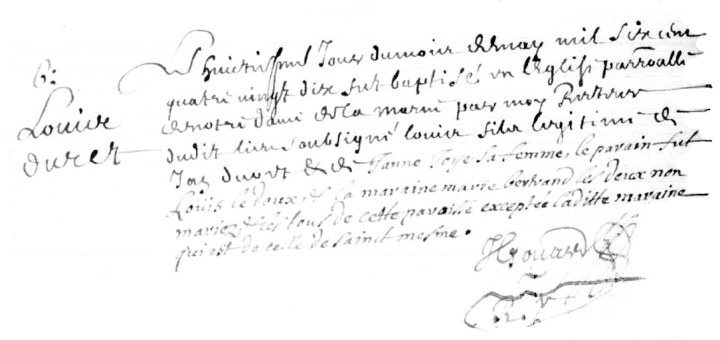 6:
Louise
duret
Le huictiesme Jour du mois de may mil six cent
quatre vingt dix fut baptisé en l'Eglise parroalle
de notre dame de la marne par moy Recteur
dudit lieu soubsigné louise fille legitime de
duret & de Janne foye sa femme, le parain fut
Loüis le doux & la maraine marie bertrand les deux non
mariez & les tous de cette paroisse exceptée laditte maraine
qui est de celle de sainct mesme.